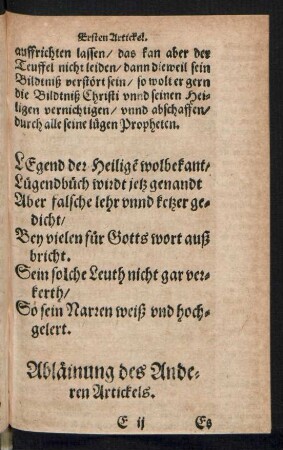 Ersten Artickel.
auffrichten lassen/ das kan aber der
Teuffel nicht leiden/ dann dieweil sein
Bildtniß verstört sein/ so wolt er gern
die Bildtniß Christi vnnd seinen Hei-
ligen vernichtigen/ vnnd abschaffen/
durch alle seine lügen Propheten.
LEgend der Heiligē wolbekant/
Lügendbüch wirdt jetz genandt
Aber falsche lehr vnnd ketzer ge-
dicht/
Bey vielen für Gotts wort auß
bricht.
Sein solche Leuth nicht gar ver-
kerth/
So sein Narren weiß vnd hoch-
gelert.
Abläinung des Ande-
ren Artickels.
E ij Es